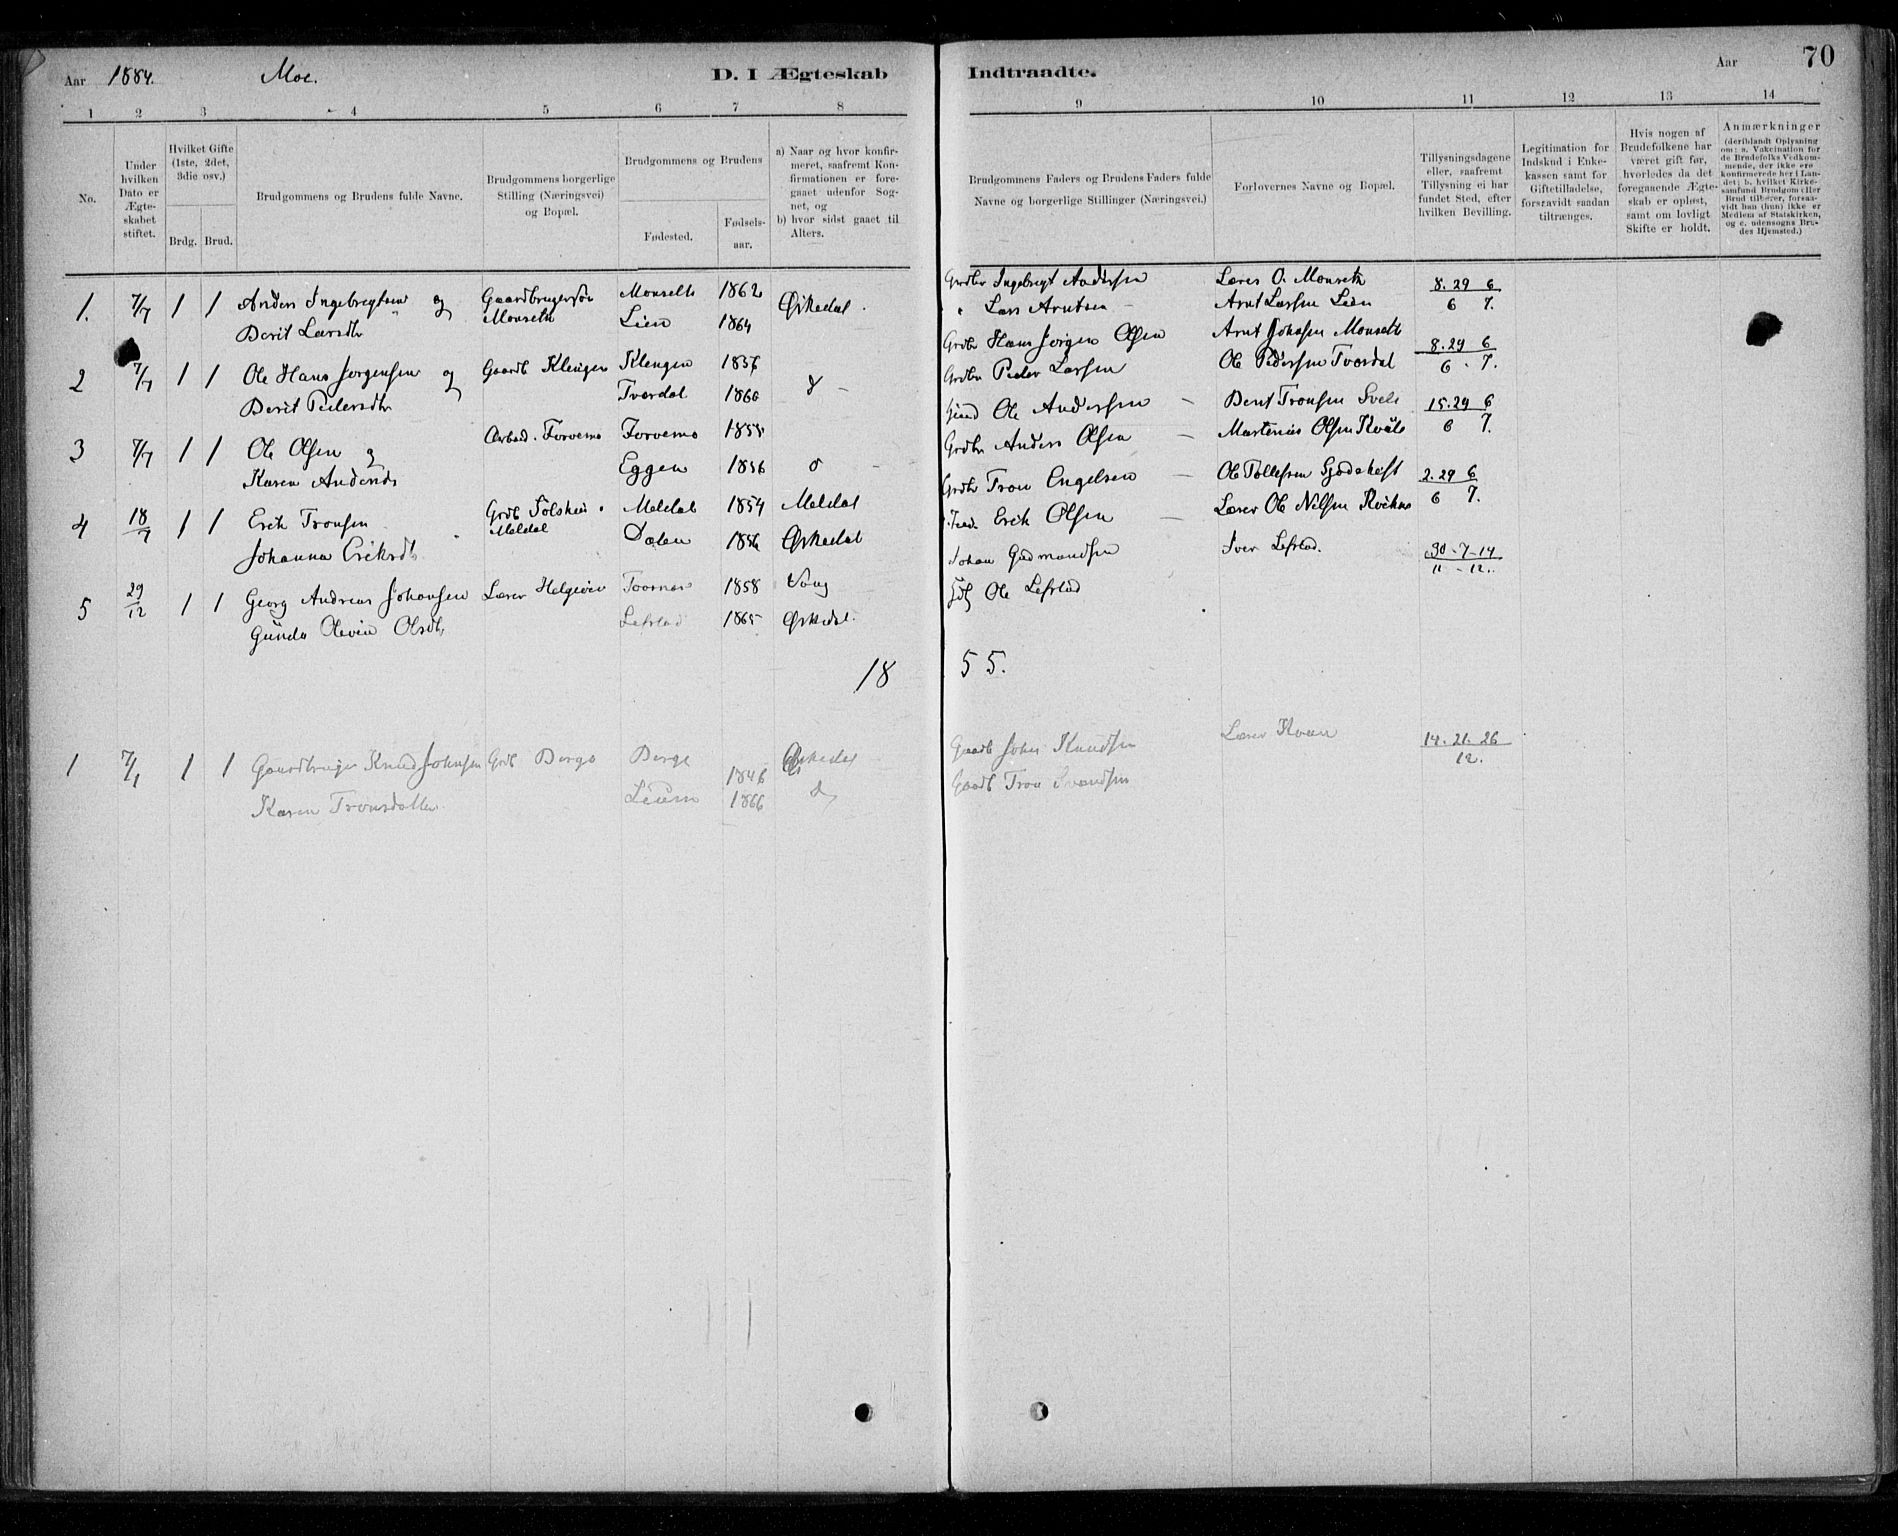 Aar 1884. Moe. D. I Ægteskab Indtraadte. Aar 70
1 2 3 4 5 6 7 8 9 10 11 12 13 14
No.
Under hvilken Dato er Ægteskabet stiftet.
Hvilket Gifte (1ste, 2det, 3die osv.)
Brdg. Brud.
Brudgommens og Brudens fulde Navne.
Brudgommens borgerlige Stilling (Næringsvei) og Bopæl.
Brudgommens og Brudens
Fødested.
Fødselsaar.
a) Naar og hvor konfirmeret, saafremt Konfirmationen er foregaaet udenfor Sognet, og
b) hvor sidst gaaet til Alters.
Brudgommens Faders og Brudens Faders fulde Navne og borgerlige Stillinger (Næringsvei.)
Forlovernes Navne og Bopæl.
Tillysningsdagene eller, saafremt Tillysning ei har fundet Sted, efter hvilken Bevilling.
Legitimation for Indskud i Enkekassen samt for Giftetilladelse, forsaavidt saadan tiltrænges.
Hvis nogen af Brudefolkene har været gift før, hvorledes da det foregaaende Ægteskab er opløst, samt om lovligt Skifte er holdt.
Anmærkninger (deriblandt Oplysning om: a. Vakcination for de Brudefolks Vedkommende, der ikke ere konfirmerede her i Landet; b. hvilket Kirkesamfund Brudgom eller Brud tilhører, forsaavidt han (hun) ikke er Medlem af Statskirken, og c. udensogns Brudes Hjemsted.)
1. 7/7 1 1 Anders Ingebregtsen og Gaardbrugersøn Monseth 1862 Ørkedal. Grdbr Ingebrigt Andersen Lærer O. Monseth 8. 29 6
Berit Larsdtr Monseth Lien 1864 " Lars Arntsen Arnt Larsen Lien 6 7.
2 7/7 1 1 Ole Hans Jørgensen og Gaardb Klingen Klengen 1856 Grdbr Hans Jørgen Olsen Arnt Johnsen Monseth 8. 29 6
Berit Pedersdtr Tverdal 1860 Grdbr Peder Larsen Ole Pedersen Tverdal 6 . 7.
3 7/7 1 1 Ole Olsen og Arbeid. Forvemo Forvemo 1855 Ole Andersen Bent Tronsen 15. 29 6
Karen Andersdr Eggen 1856 Grdbr Anders Olsen Martenius Olsen 6 7.
4 18/7 1 1 Erik Tronsen Grdb Solskin Meldal 1854 Meldal Grdbr Tron Engelsen Ole Tollefsen 2. 29 6
Johanna Eriksdtr Meldal Dalen 1856 Ørkedal Erik Olsen Lærer Ole Nilsen 6 7.
5 29/12 1 1 Georg Andreas Johansen Lærer 1858 Johan Gudmundsen Iver Lefstad. 30-7-14
Gunda Olevin Olsdtr Lefstad 1865 Ørkedal. Ole Lefstad 11 - 12.
18 55.
1 7/1 1 1 Gaardbruger Knud Johnsen Grdb Berge Berge 1846 Ørkedal Gaardb John Knudsen Lærer Kvam 14. 21. 26
Karen Tronsdatter 1866 Gaardb Tron 12.